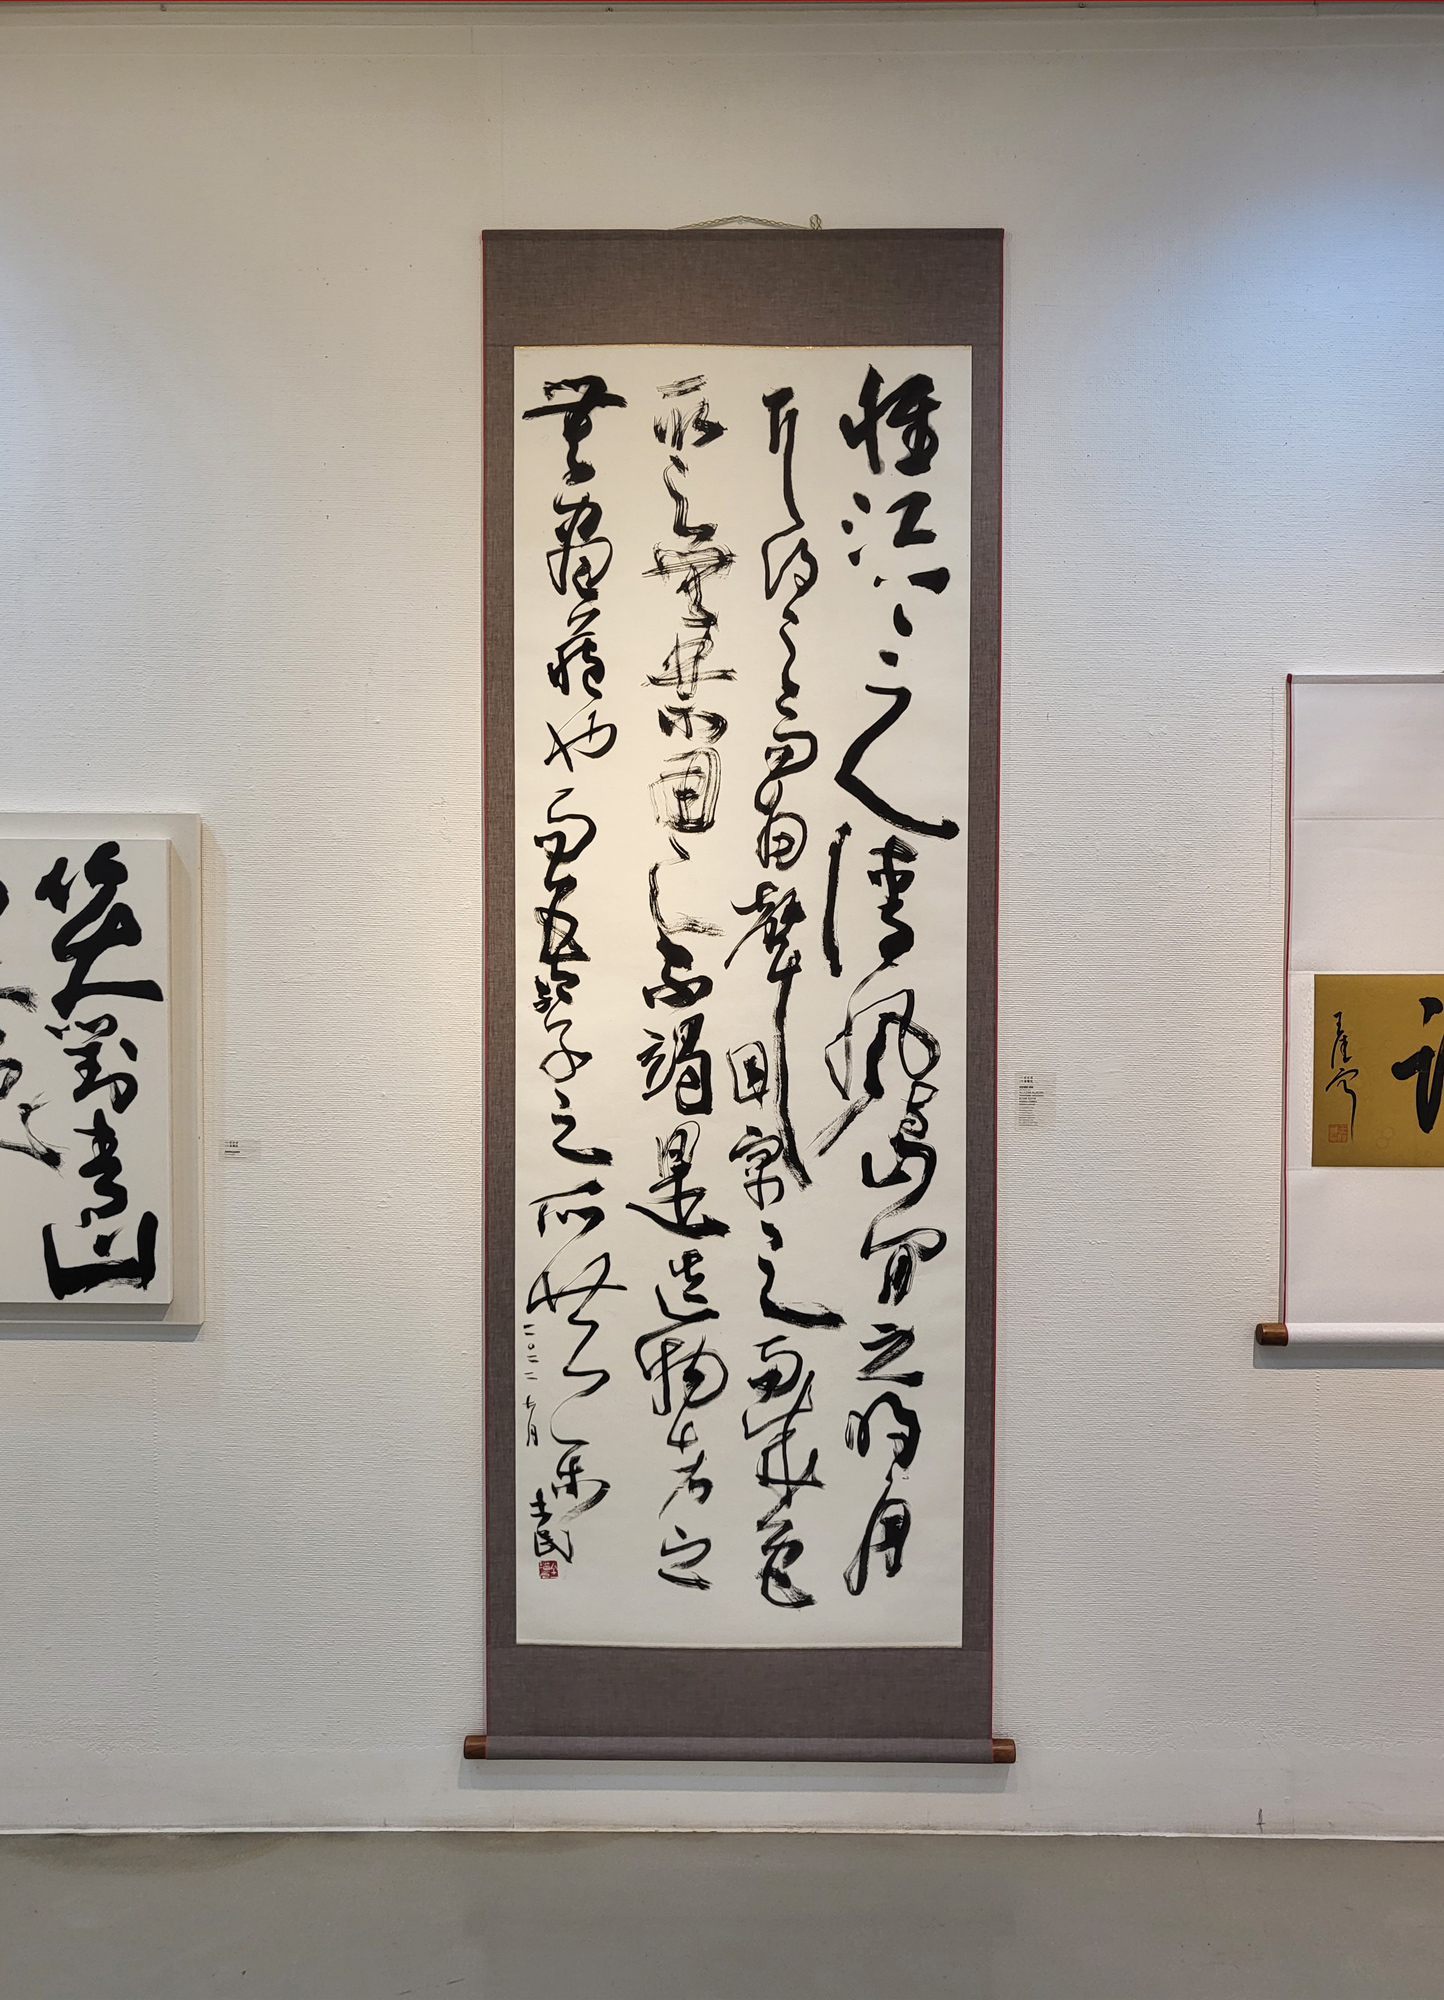 惟江上之清風与山間之明月
耳得之而為聲目寓之而成色
取之無禁用之不竭是造物者之
無盡藏也而吾與子之所共樂
二〇二二七月
笑對青山